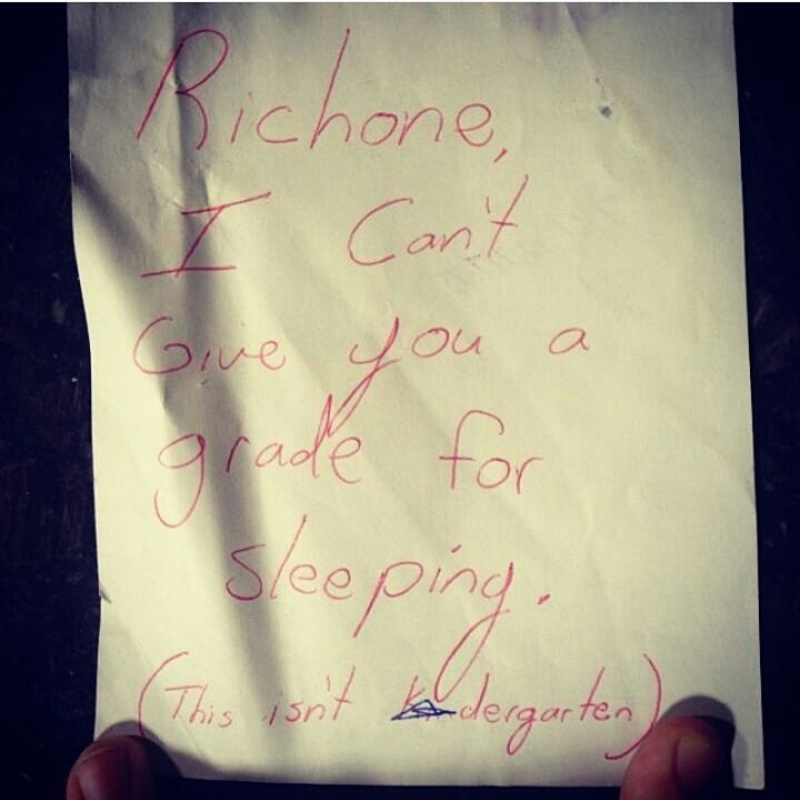 Richone,
I Can't
Give you a
grade for
sleeping.
(This isn't kindergarten)